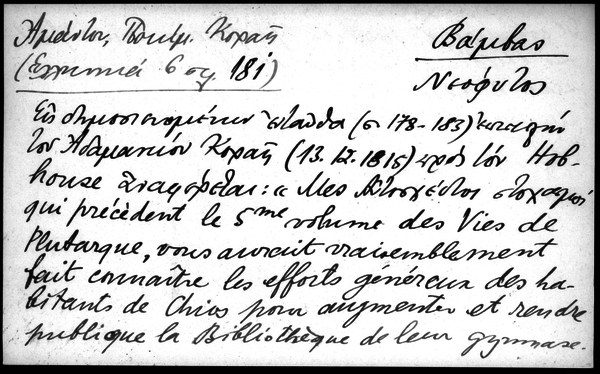 Ἀμάντου, Κοραῆ
(Ἑλληνικά 6 σ. 181)
Βάμβας
Νεόφυτος
Εἰς δημοσιευομένην ἐνταῦθα (σ. 178-183) ἐπιστολήν
τοῦ Ἀδαμαντίου Κοραῆ (13. IX. 1815) πρὸς τὸν Hob-
house ἀναφέρεται: « Mes Αὐτοσχέδιοι στοχασμοί
qui précèdent le 5me volume des Vies de
Plutarque, vous aurait vraisemblement
fait connaître les efforts généreux des ha-
bitants de Chios pour augmenter et rendre
publique la Bibliothèque de leur gymnase.